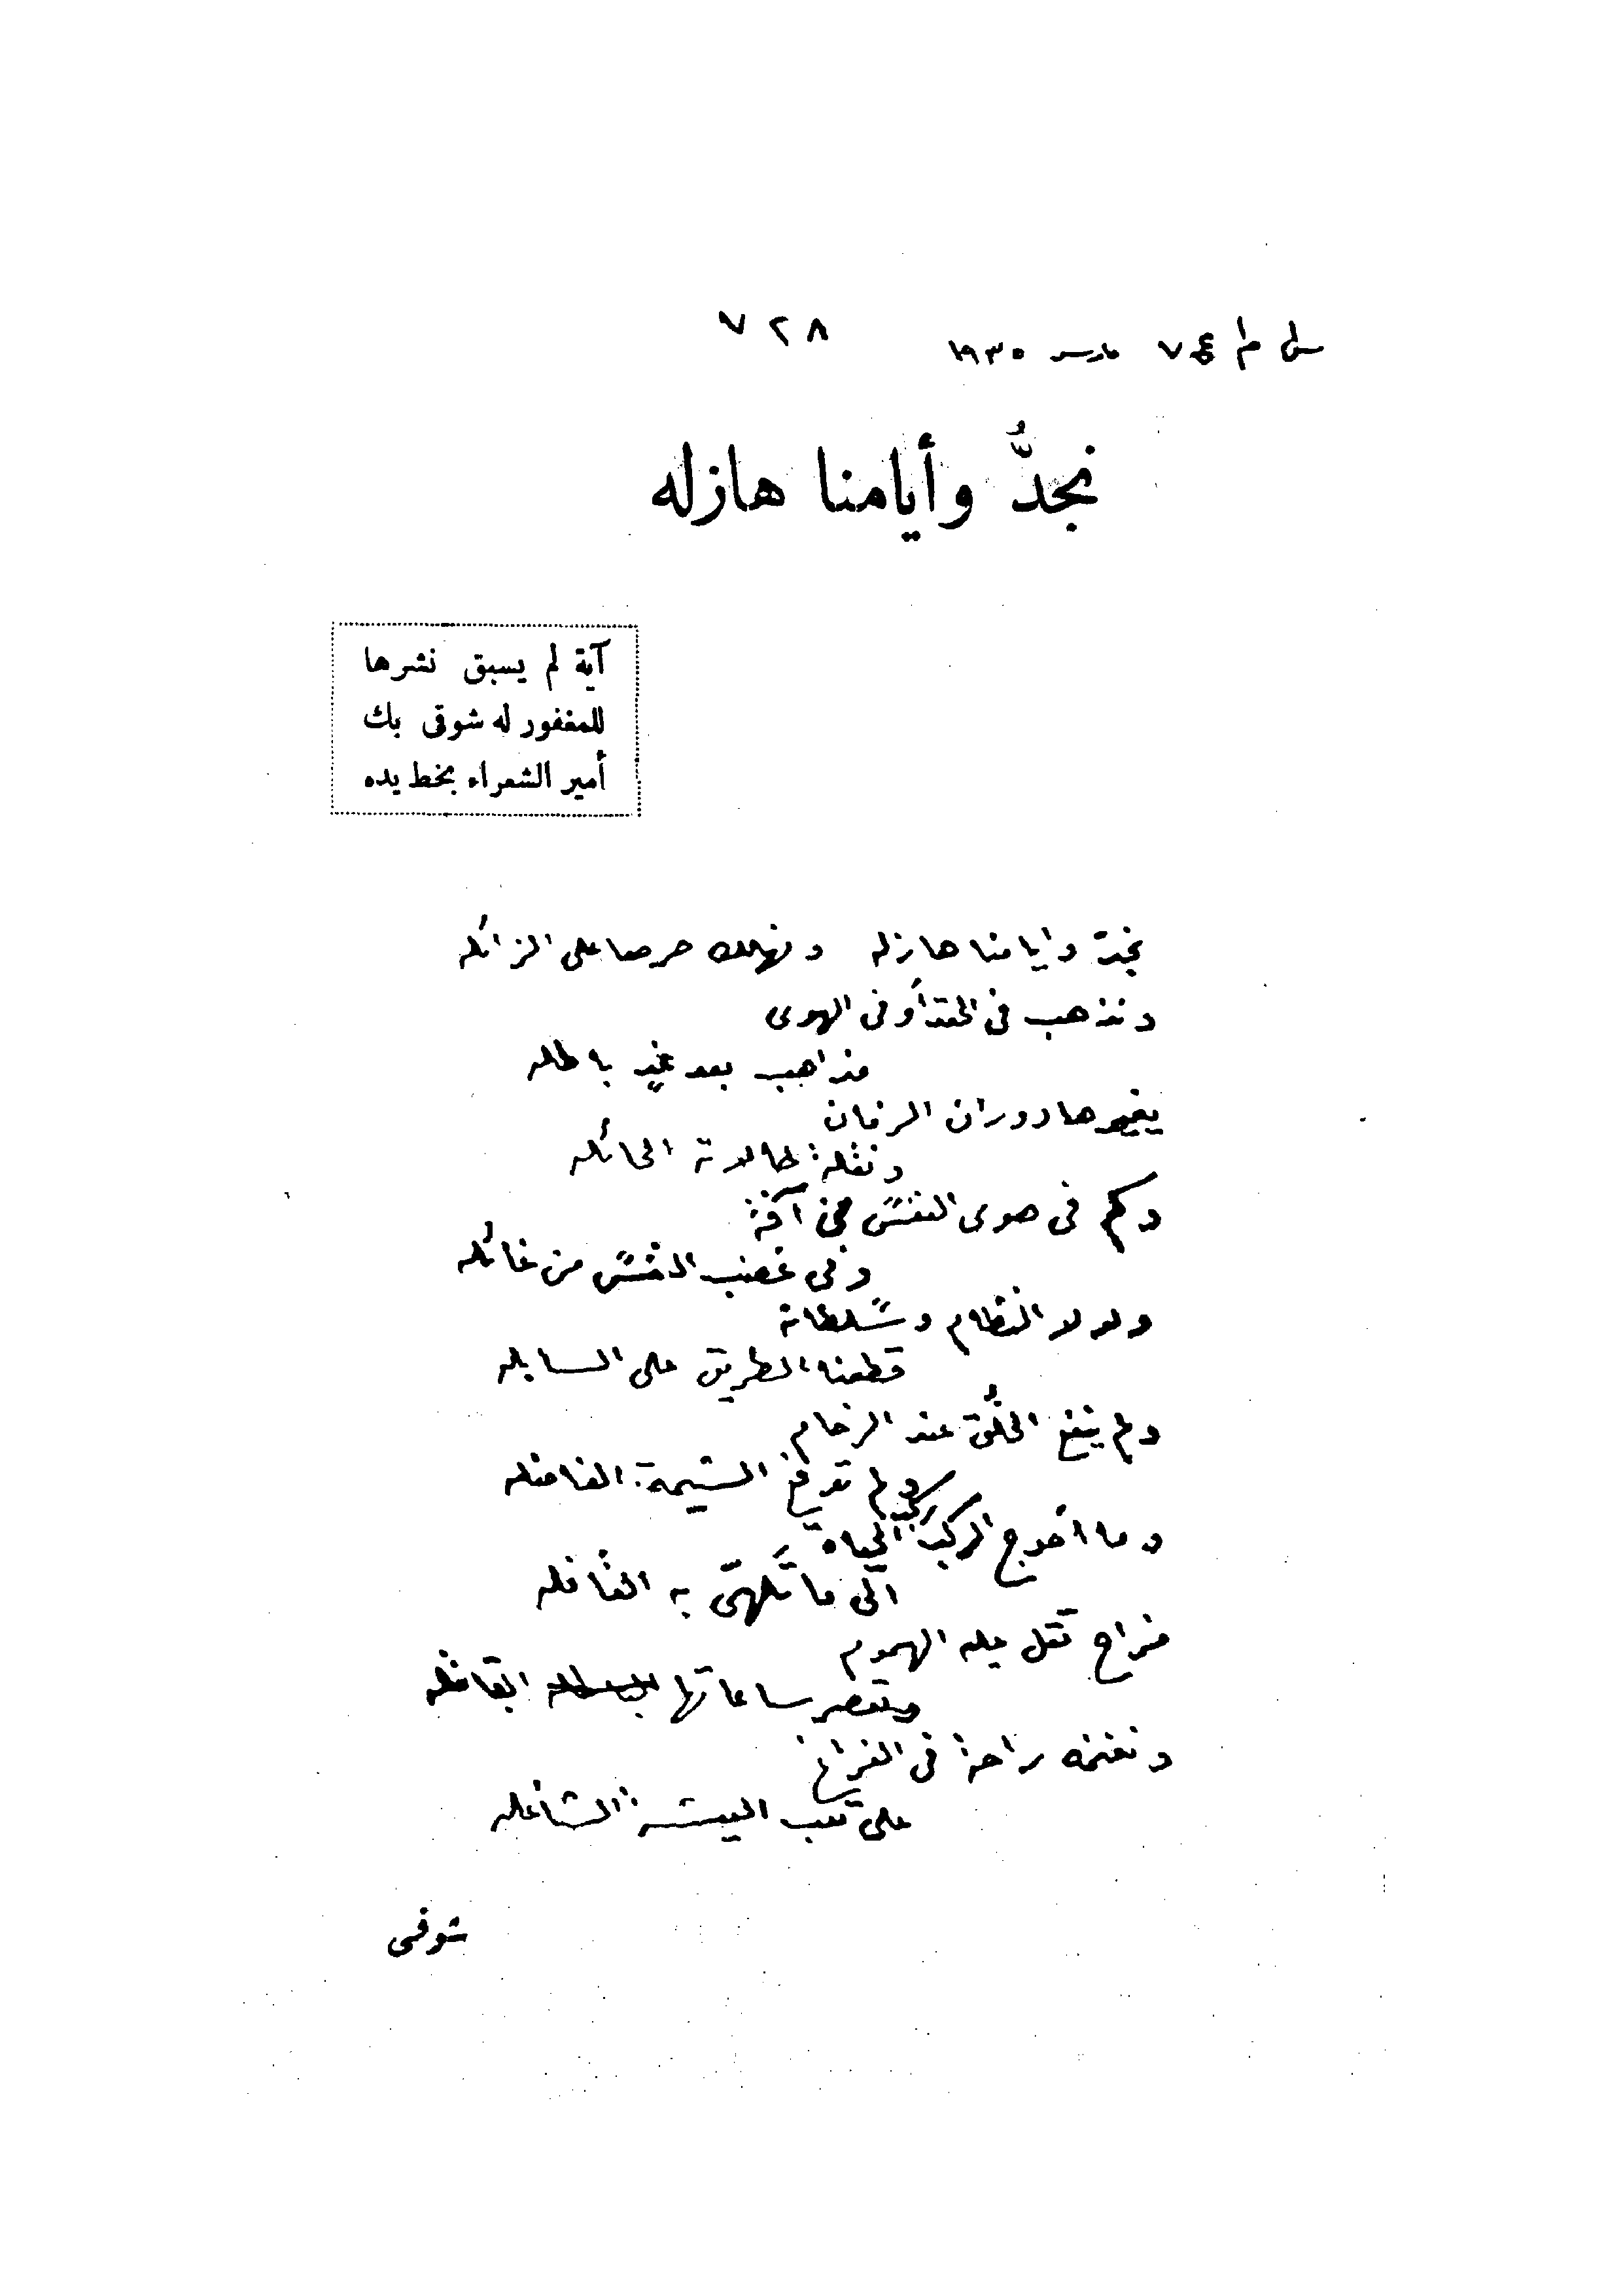 ٧ مارس ١٩٣٥
٧٢٨
نجدُّ وأيامنا هازله
آية لم يسبق نشرها
للمغفور له شوقى بك
أمير الشعراء بخط يده
نجدّ وايامنا هازله ونهلك حرصا على الزائله
ونذهب فى الحقد أو فى الهوى
مذاهب بعد غدٍ باطله
يغيرها دوران الزمان
ونقلة حالاته الحائله
وكم فى هوى النفس من آفة
وفى غضب النفس من غائله
ولولا النظام وسلطانه
قطعنا الطريق على السابله
ولم ينفع الخُلُق عند الزحام
ولم تفرغ الشيمة الفاضله
وما أحوج الركب ركب الحياه
الى ما تَلَهّى به القافله
مزاح تقل عليه الهموم
وتقصر ساعاتها القاتله
ونغنمه راحة فى الفراغ
على تعب العيشة الشاغله
شوقى